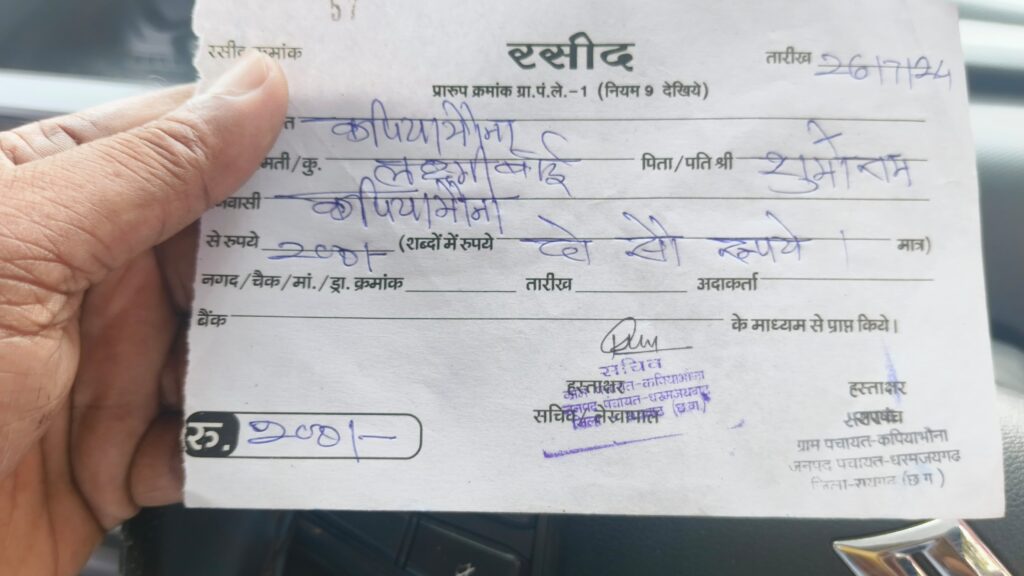 57
रसीद क्रमांक रसीद तारीख 26/7/24
प्रारुप क्रमांक ग्रा.पं.ले.-1 (नियम 9 देखिये)
त कपियाभौना
मती/कु. लक्ष्मीबाई पिता/पति श्री
वासी कपियाभौना
से रुपये 200/- (शब्दों में रुपये दो सौ रूपये । मात्र)
नगद/चैक/मां./ड्रा. क्रमांक तारीख अदाकर्ता
बैंक के माध्यम से प्राप्त किये।
सचिव
हस्ताक्षर हस्ताक्षर
ग्राम पंचायत-कपियाभौना
जनपद पंचायत-धरमजयगढ़
सचिव/लेखापाल सरपंच
ग्राम पंचायत-कपियाभौना
जनपद पंचायत-धरमजयगढ
जिला-रायगढ (छ.ग.)
रु. 200/-